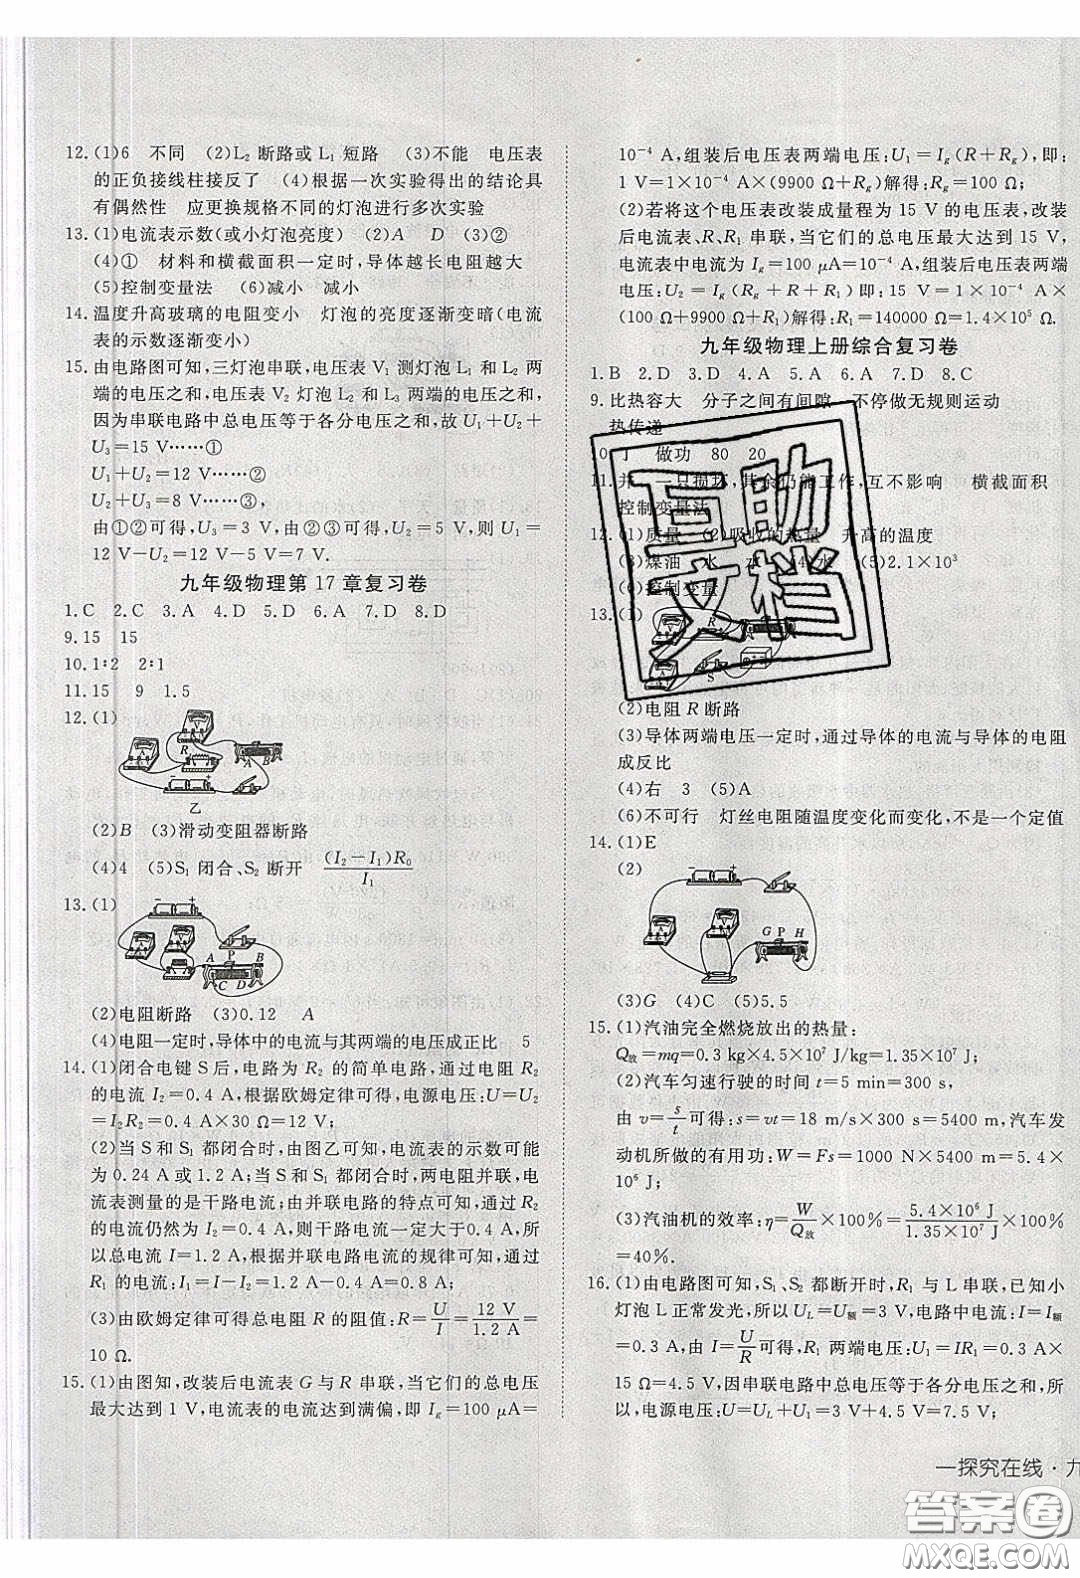 12.(1)6　不同　(2)L₂ 断路或 L₁ 短路　(3)不能　电压表
的正负接线柱接反了　(4)根据一次实验得出的结论具
有偶然性　应更换规格不同的灯泡进行多次实验
13.(1)电流表示数(或小灯泡亮度)　(2)A　D　(3)②
(4)①　材料和横截面积一定时,导体越长电阻越大
(5)控制变量法　(6)减小　减小
14.温度升高玻璃的电阻变小　灯泡的亮度逐渐变暗(电流
表的示数逐渐变小)
15.由电路图可知,三灯泡串联,电压表 V₁ 测灯泡 L₁、L₂ 两
端的电压之和,电压表 V₂ 测灯泡 L₂ 和 L₃ 两端的电压之和,
因为串联电路中总电压等于各分电压之和,故 U₁+U₂+
U₃=15 V……①
U₁+U₂=12 V……②
U₂+U₃=8 V……③
由①②可得,U₃=3 V,由①②③可得,U₂=5 V,则 U₁=
12 V−U₂=12 V−5 V=7 V.
九年级物理第 17 章复习卷
1.C　2.C　3.A　4.D　5.D　6.D　7.D　8.D
9.15　15
10.1∶2　2∶1
11.15　9　1.5
12.(1)
R₁
A B
乙
(2)B　(3)滑动变阻器断路
(4)4　(5)S₁ 闭合、S₂ 断开　(I₂−I₁)R₀/I₁
13.(1)
A P B
C D
(2)电阻断路　(3)0.12　A
(4)电阻一定时,导体中的电流与其两端的电压成正比　5
14.(1)闭合电键 S 后,电路为 R₂ 的简单电路,通过电阻 R₂
的电流 I₂=0.4 A,根据欧姆定律可得,电源电压:U=U₂
=I₂R₂=0.4 A×30 Ω=12 V;
(2)当 S 和 S₁ 都闭合时,由图乙可知,电流表的示数可能
为 0.24 A 或 1.2 A;当 S 和 S₁ 都闭合时,两电阻并联,电
流表测量的是干路电流;由并联电路的特点可知,通过 R₂
的电流仍然为 I₂=0.4 A,则干路电流一定大于0.4 A,所
以总电流 I=1.2 A,根据并联电路电流的规律可知,通过
R₁ 的电流:I₁=I−I₂=1.2 A−0.4 A=0.8 A;
(3)由欧姆定律可得总电阻 R 的阻值:R=U/I=12 V/1.2 A=
10 Ω.
15.(1)由图知,改装后电流表 G 与 R 串联,当它们的总电压
最大达到 1 V,电流表的电流达到满偏,即 I_g=100 μA=
10⁻⁴ A,组装后电压表两端电压:U₁=I_g(R+R_g),即:
1 V=1×10⁻⁴ A×(9900 Ω+R_g)解得:R_g=100 Ω;
(2)若将这个电压表改装成量程为 15 V 的电压表,改装
后电流表、R、R₁ 串联,当它们的总电压最大达到 15 V,
电流表中电流为 I_g=100 μA=10⁻⁴ A,组装后电压表两端
电压:U₂=I_g(R_g+R+R₁),即:15 V=1×10⁻⁴ A×
(100 Ω+9900 Ω+R₁)解得:R₁=140000 Ω=1.4×10⁵ Ω.
九年级物理上册综合复习卷
1.B　2.D　3.D　4.A　5.A　6.A　7.D　8.C
9.比热容大　分子之间有间隙　不停做无规则运动
热传递
10.丁　做功　80　20
11.并　一只损坏,其余仍能工作,互不影响　横截面积
控制变量法
12.(1)质量　(2)吸收的热量　升高的温度
(3)煤油　水　水　(4)水　(5)2.1×10³
(6)控制变量
13.(1)
R
S
(2)电阻 R 断路
(3)导体两端电压一定时,通过导体的电流与导体的电阻
成反比
(4)右　3　(5)A
(6)不可行　灯丝电阻随温度变化而变化,不是一个定值
14.(1)E
(2)
G P H
(3)G　(4)C　(5)5.5
15.(1)汽油完全燃烧放出的热量:
Q放=mq=0.3 kg×4.5×10⁷ J/kg=1.35×10⁷ J;
(2)汽车匀速行驶的时间 t=5 min=300 s,
由 v=s/t 可得:s=vt=18 m/s×300 s=5400 m,汽车发
动机所做的有用功:W=Fs=1000 N×5400 m=5.4×
10⁶ J;
(3)汽油机的效率:η=W/Q放×100%=5.4×10⁶ J/1.35×10⁷ J×100%
=40%.
16.(1)由电路图可知,S₁、S₂ 都断开时,R₁ 与 L 串联,已知小
灯泡 L 正常发光,所以 U_L=U额=3 V,电路中电流:I=I额
=0.3 A,由 I=U/R 可得,R₁ 两端电压:U₁=IR₁=0.3 A×
15 Ω=4.5 V,因串联电路中总电压等于各分电压之和,所
以,电源电压:U=U_L+U₁=3 V+4.5 V=7.5 V;
一探究在线·九
互助
文档
答案圈
MXQE.COM